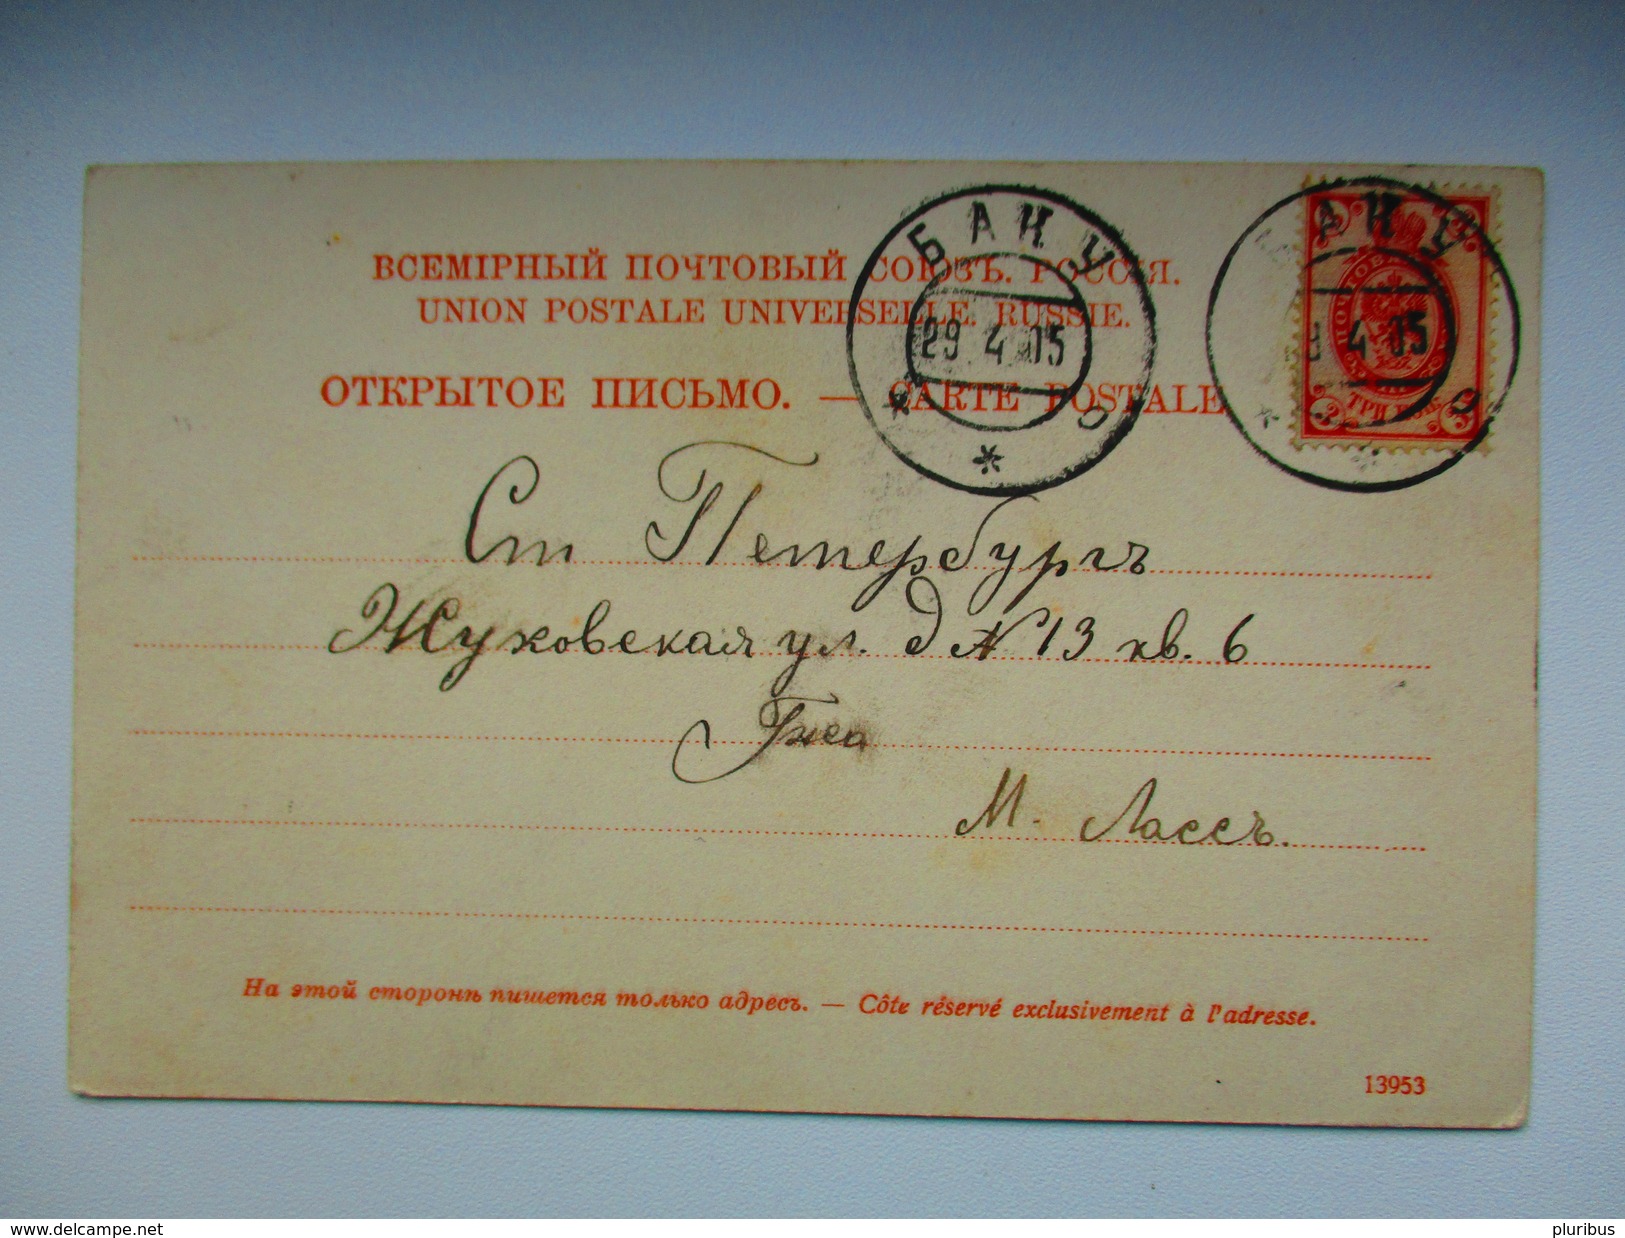 ВСЕМІРНЫЙ ПОЧТОВЫЙ СОЮЗЪ. РОССІЯ.
UNION POSTALE UNIVERSELLE. RUSSIE.
ОТКРЫТОЕ ПИСЬМО. — CARTE POSTALE
БАКУ
29 4 05
БАКУ
9 4 05
ПОЧТОВ
ТРИ КОП.
3 3
Ст Петербургъ
Жуковская ул. д № 13 кв. 6
Гжа
М. Лассъ.
На этой сторонѣ пишется только адресъ. — Côte réservé exclusivement à l'adresse.
13953
www.delcampe.net
pluribus